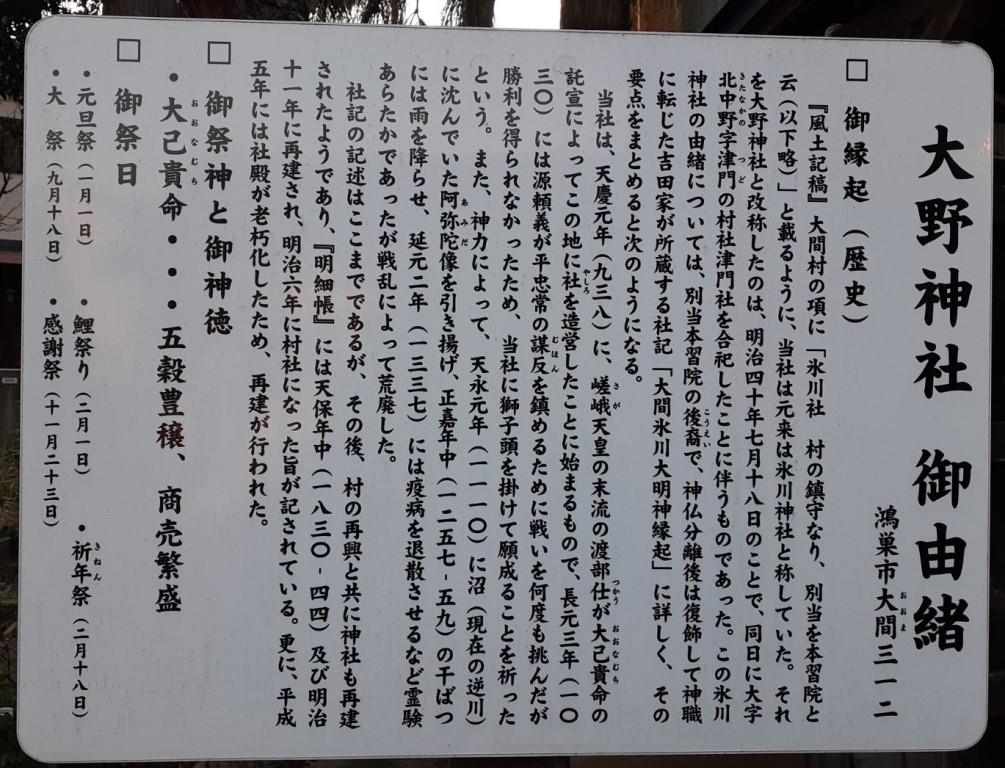 大野神社 御由緒
鴻巣市大間三一二
おおま
□ 御縁起（歴史）
『風土記稿』大間村の項に「氷川社 村の鎮守なり、別当を本習院と
云（以下略）」と載るように、当社は元来は氷川神社と称していた。それ
を大野神社と改称したのは、明治四十年七月十八日のことで、同日に大字
北中野字津門の村社津門社を合祀したことに伴うものであった。この氷川
きたなかの つつど
神社の由緒については、別当本習院の後裔で、神仏分離後は復飾して神職
こうえい
に転じた吉田家が所蔵する社記「大間氷川大明神縁起」に詳しく、その
要点をまとめると次のようになる。
当社は、天慶元年（九三八）に、嵯峨天皇の末流の渡部仕が大己貴命の
さが つかう おおなむち
託宣によってこの地に社を造営したことに始まるもので、長元三年（一〇
やしろ
三〇）には源頼義が平忠常の謀反を鎮めるために戦いを何度も挑んだが
むほん
勝利を得られなかったため、当社に獅子頭を掛けて願成ることを祈った
という。また、神力によって、天永元年（一一一〇）に沼（現在の逆川）
に沈んでいた阿弥陀像を引き揚げ、正嘉年中（一二五七-五九）の干ばつ
あみだ
には雨を降らせ、延元二年（一三三七）には疫病を退散させるなど霊験
あらたかであったが戦乱によって荒廃した。
社記の記述はここまでであるが、その後、村の再興と共に神社も再建
されたようであり、『明細帳』には天保年中（一八三〇-四四）及び明治
十一年に再建され、明治六年に村社になった旨が記されている。更に、平成
五年には社殿が老朽化したため、再建が行われた。
□ 御祭神と御神徳
・大己貴命・・・五穀豊穣、商売繁盛
おおなむち
□ 御祭日
・元旦祭（一月一日） ・鯉祭り（二月一日） ・祈年祭（二月十八日）
きねん
・大 祭（九月十八日） ・感謝祭（十一月二十三日）